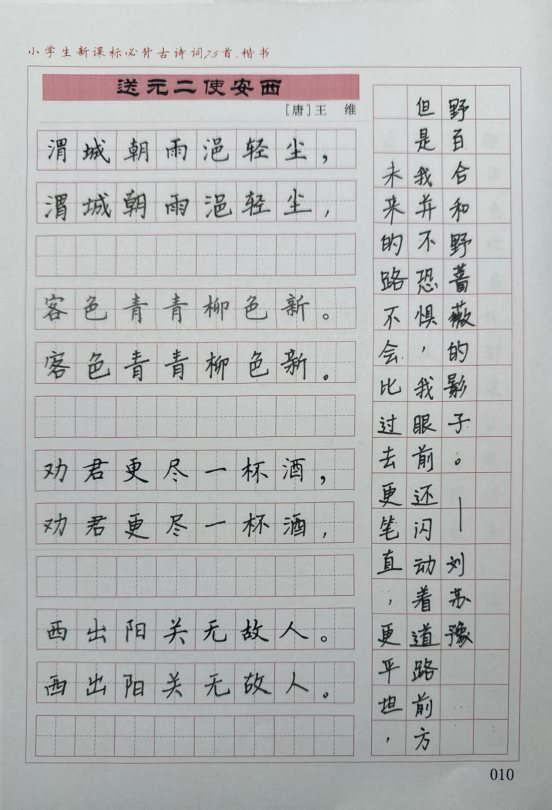 小学生新课标必背古诗词75首.楷书
送元二使安西
[唐]王 维
渭城朝雨浥轻尘，
渭城朝雨浥轻尘，
客色青青柳色新。
客色青青柳色新。
劝君更尽一杯酒，
劝君更尽一杯酒，
西出阳关无故人。
西出阳关无故人。
未来的路不会比过去更笔直，更平坦，
但是我并不恐惧，我眼前还闪动着道路前方
野百合和野蔷薇的影子。—刘苏豫
010